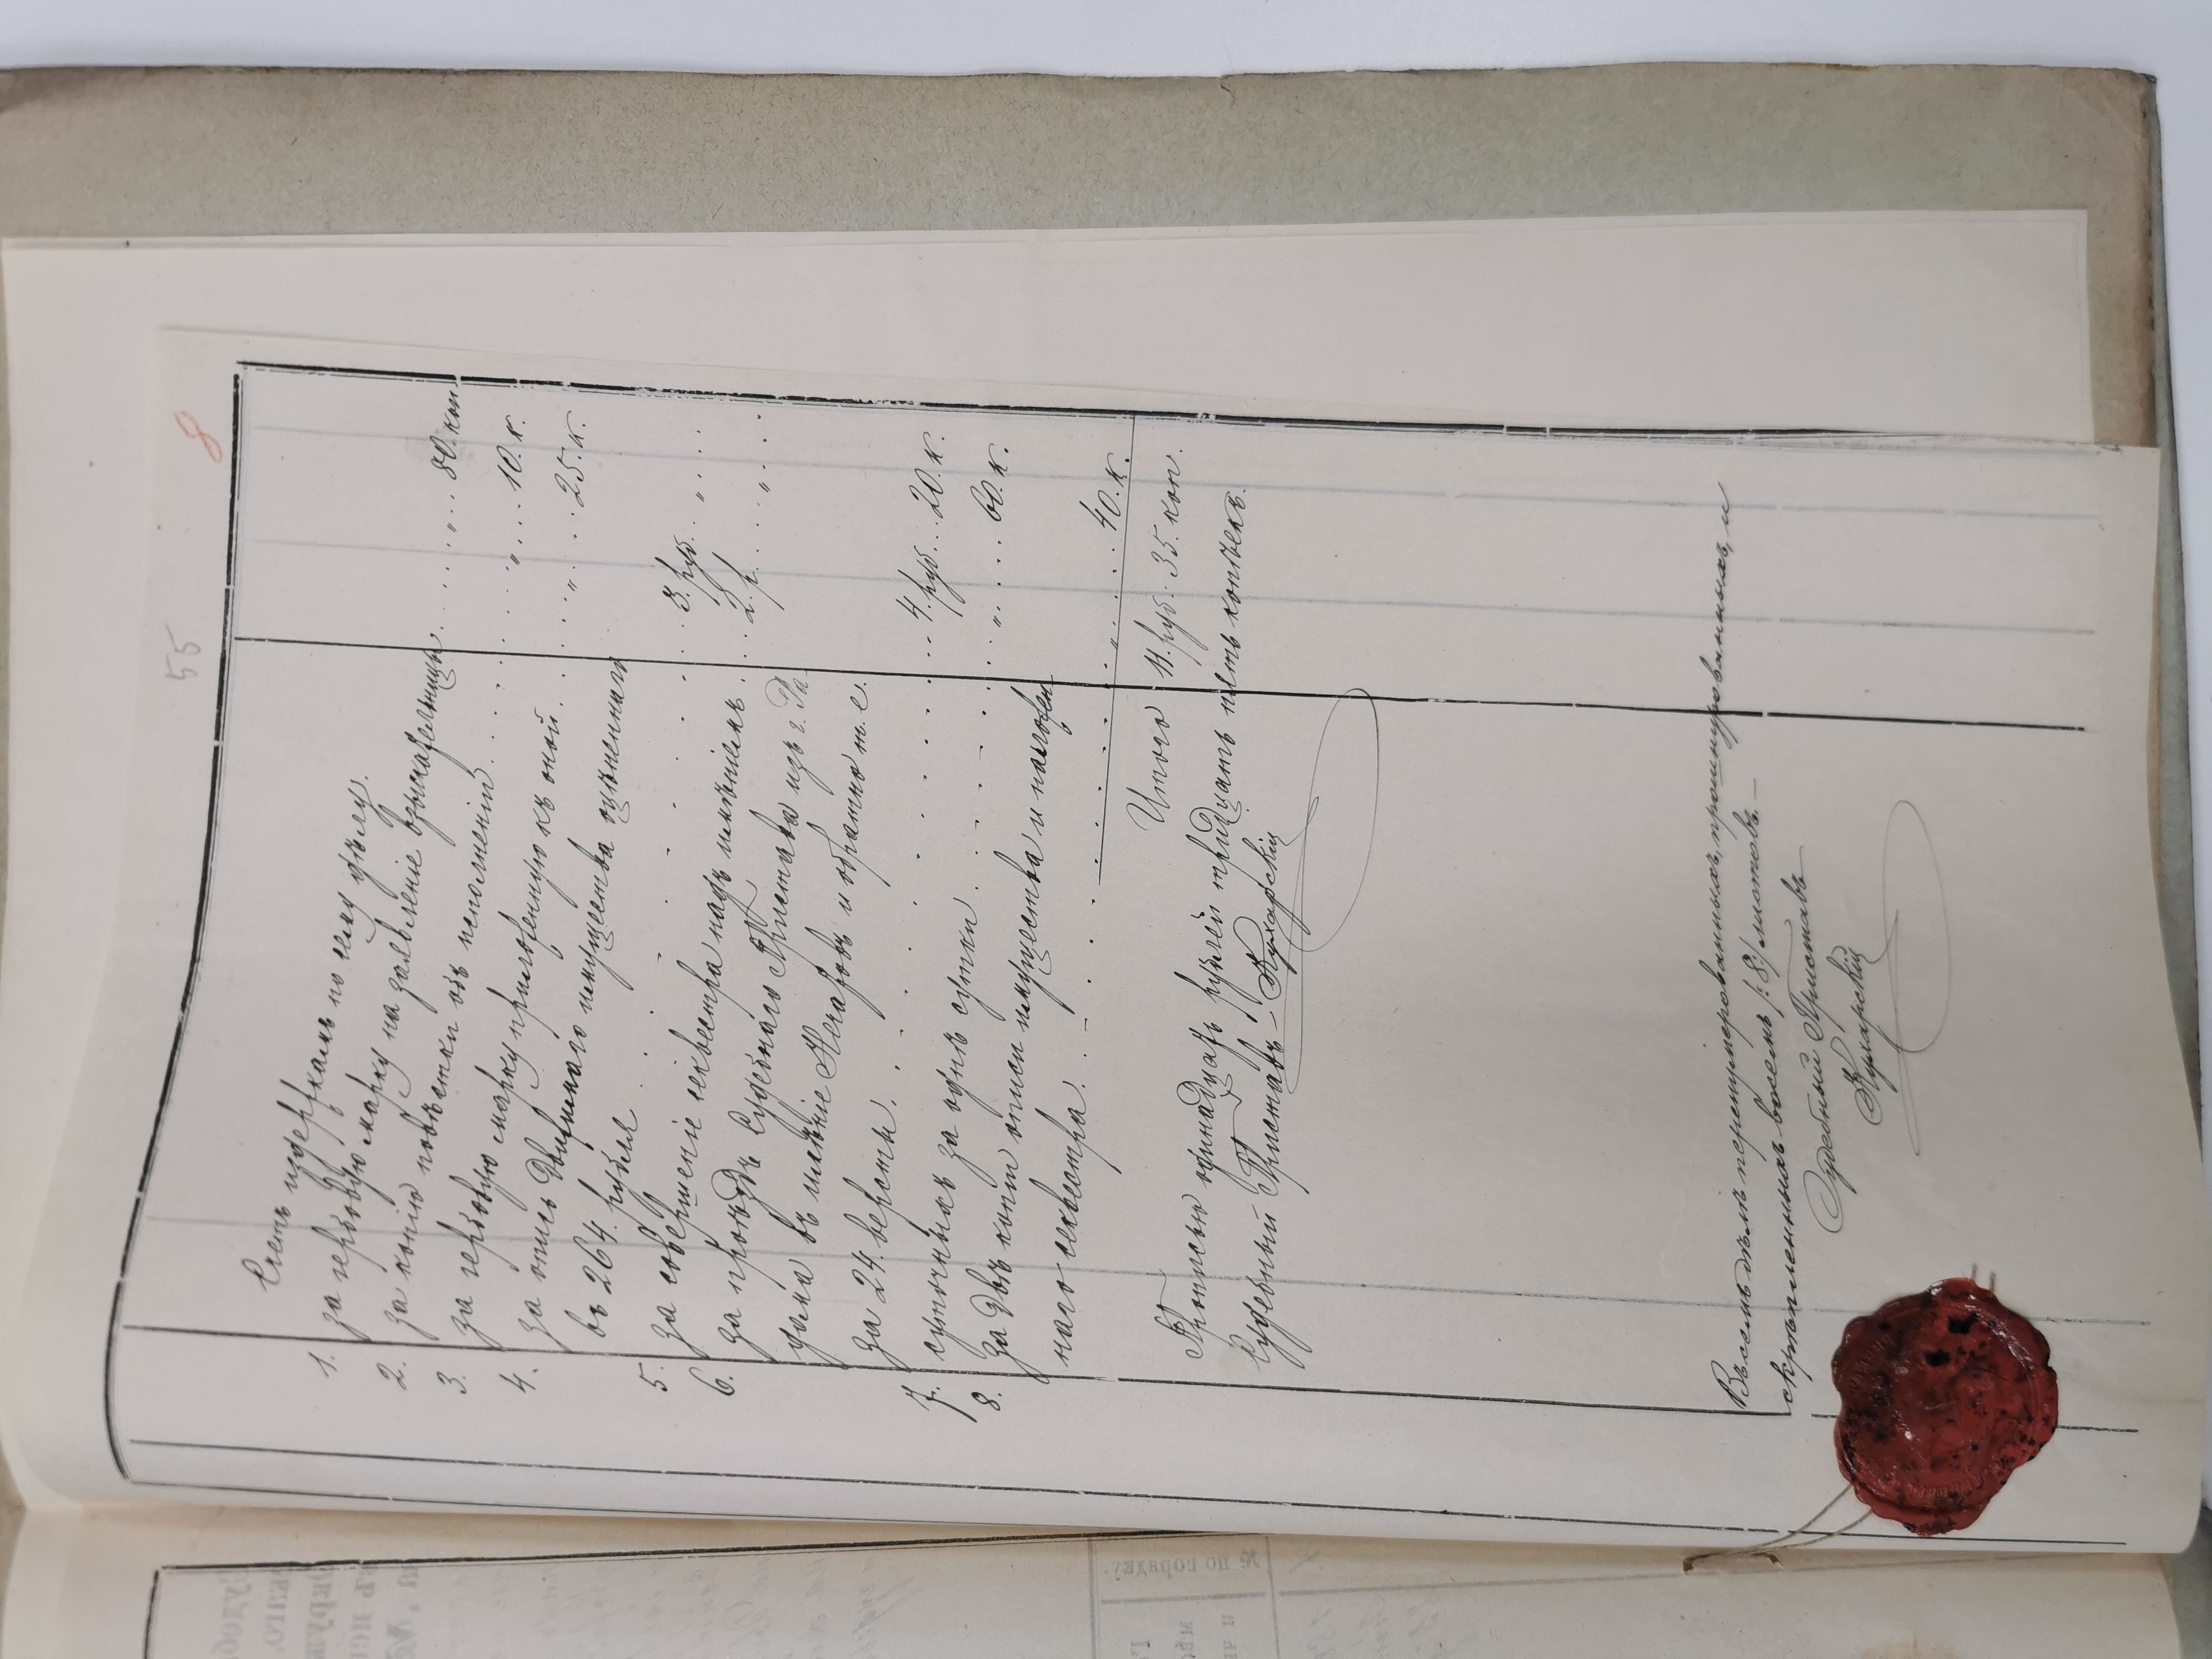 55
8
Счетъ издержкамъ по сему дѣлу.
1. за гербовую марку на заявленіе взыскательницы . . . . „ . . 80. коп
2. за копію повѣстки объ исполненіи . . . . . „ . . . 10. к.
3. за гербовую марку приложенную къ оной . . . . „ . . . 25. к.
4. за опись движимаго имущества оцѣненнаго
въ 264. рубля . . . . . . 3. руб. . „ . .
5. за совершеніе секвестра надъ имѣніемъ . . 2. р. . . „ . .
6. за проѣздъ Судебнаго Пристава изъ г. Ра-
дома въ имѣніе и обратно т. е.
за 24. версты . . . . . . . . 4. руб. . . 20. к.
7. суточныхъ за однѣ сутки . . . . . „ . . . 60. к.
8. за двѣ копіи описи имущества и наложен-
наго секвестра . . . . . . . „ . . . 40. к.
Итого 11. руб. 35. коп.
Прописью одинадцать рублей тридцать пять копѣекъ.
Судебный Приставъ — Кухарскій
Въ семъ дѣлѣ перенумерованныхъ, прошнурованныхъ, и
скрѣпленныхъ восемь /:8:/ листовъ. —
Судебный Приставъ
Кухарскій
№ по порядку.